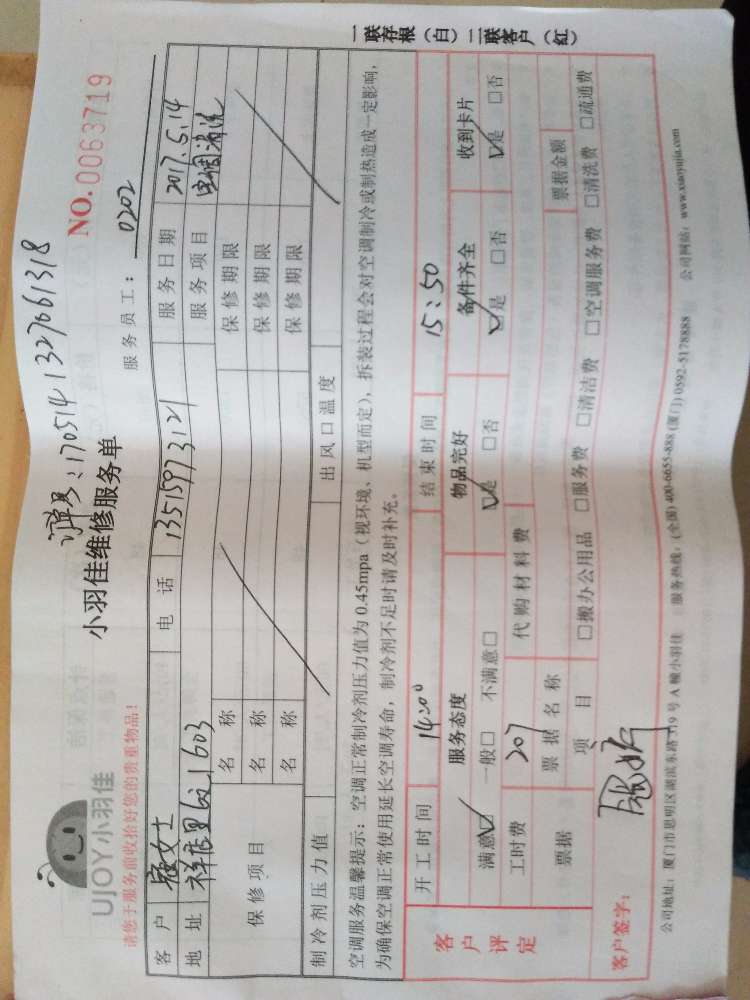 UJOY小羽佳
单号:170514 1327661318
小羽佳维修服务单
NO.0063719
请您于服务前收拾好您的贵重物品!
服务员工: 0202
客户 女士 电话 13515973121 服务日期 2017.5.14
地址 祥店里 603 服务项目 电器清洗
保修项目 名称 保修期限
名称 保修期限
名称 保修期限
制冷剂压力值 出风口温度
空调服务温馨提示:空调正常制冷剂压力值为 0.45mpa(视环境、机型而定),拆装过程会对空调制冷或制热造成一定影响,
为确保空调正常使用延长空调寿命,制冷剂不足时请及时补充。
客户评定
开工时间 14:00 结束时间 15:50
服务态度 物品完好 备件齐全 收到卡片
满意☑ 一般□ 不满意□ ☑是 □否 ☑是 □否 ☑是 □否
工时费 207 代购材料费
票据 票据名称 票据金额
项目 □搬办公用品 □服务费 □清洁费 □空调服务费 □清洗费 □疏通费
客户签字:
公司地址:厦门市思明区湖滨东路319号A幢小羽佳 服务热线:(全国)400-6655-888(厦门)0592-5178888 公司网站:www.xiaoyujia.com
一联存根(白)二联客户(红)